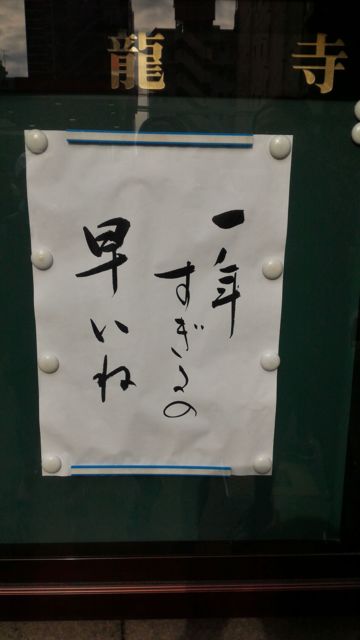 龍寺
一年
すぎるの
早いね